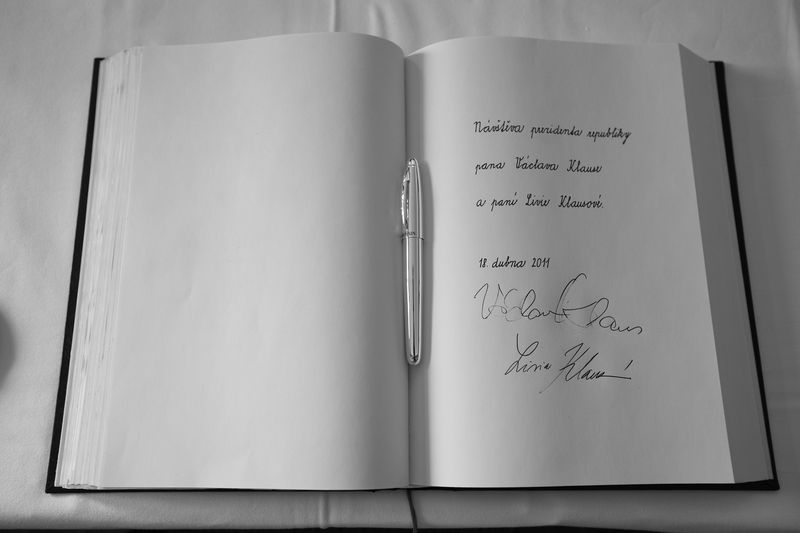 Návštěva prezidenta republiky
pana Václava Klause
a paní Livie Klausové.
18. dubna 2011
Václav Klaus
Livia Klausová